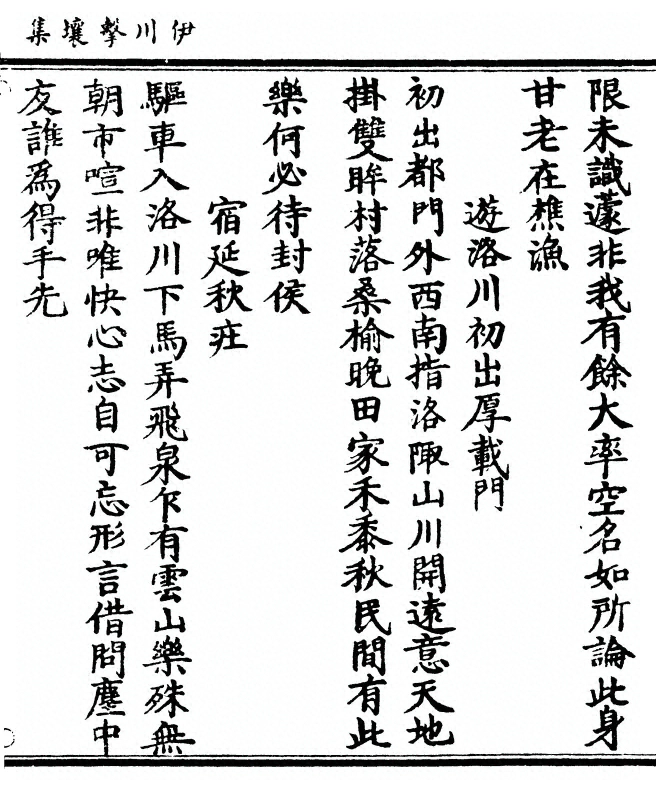 伊川擊壤集
限未識蘧非我有餘大率空名如所論此身
甘老在樵漁
遊洛川初出厚載門
初出都門外西南指洛陬山川開遠意天地
掛雙眸村落桑榆晚田家禾黍秋民間有此
樂何必待封侯
宿延秋庄
驅車入洛川下馬弄飛泉乍有雲山樂殊無
朝市喧非唯快心志自可忘形言借問塵中
友誰為得手先